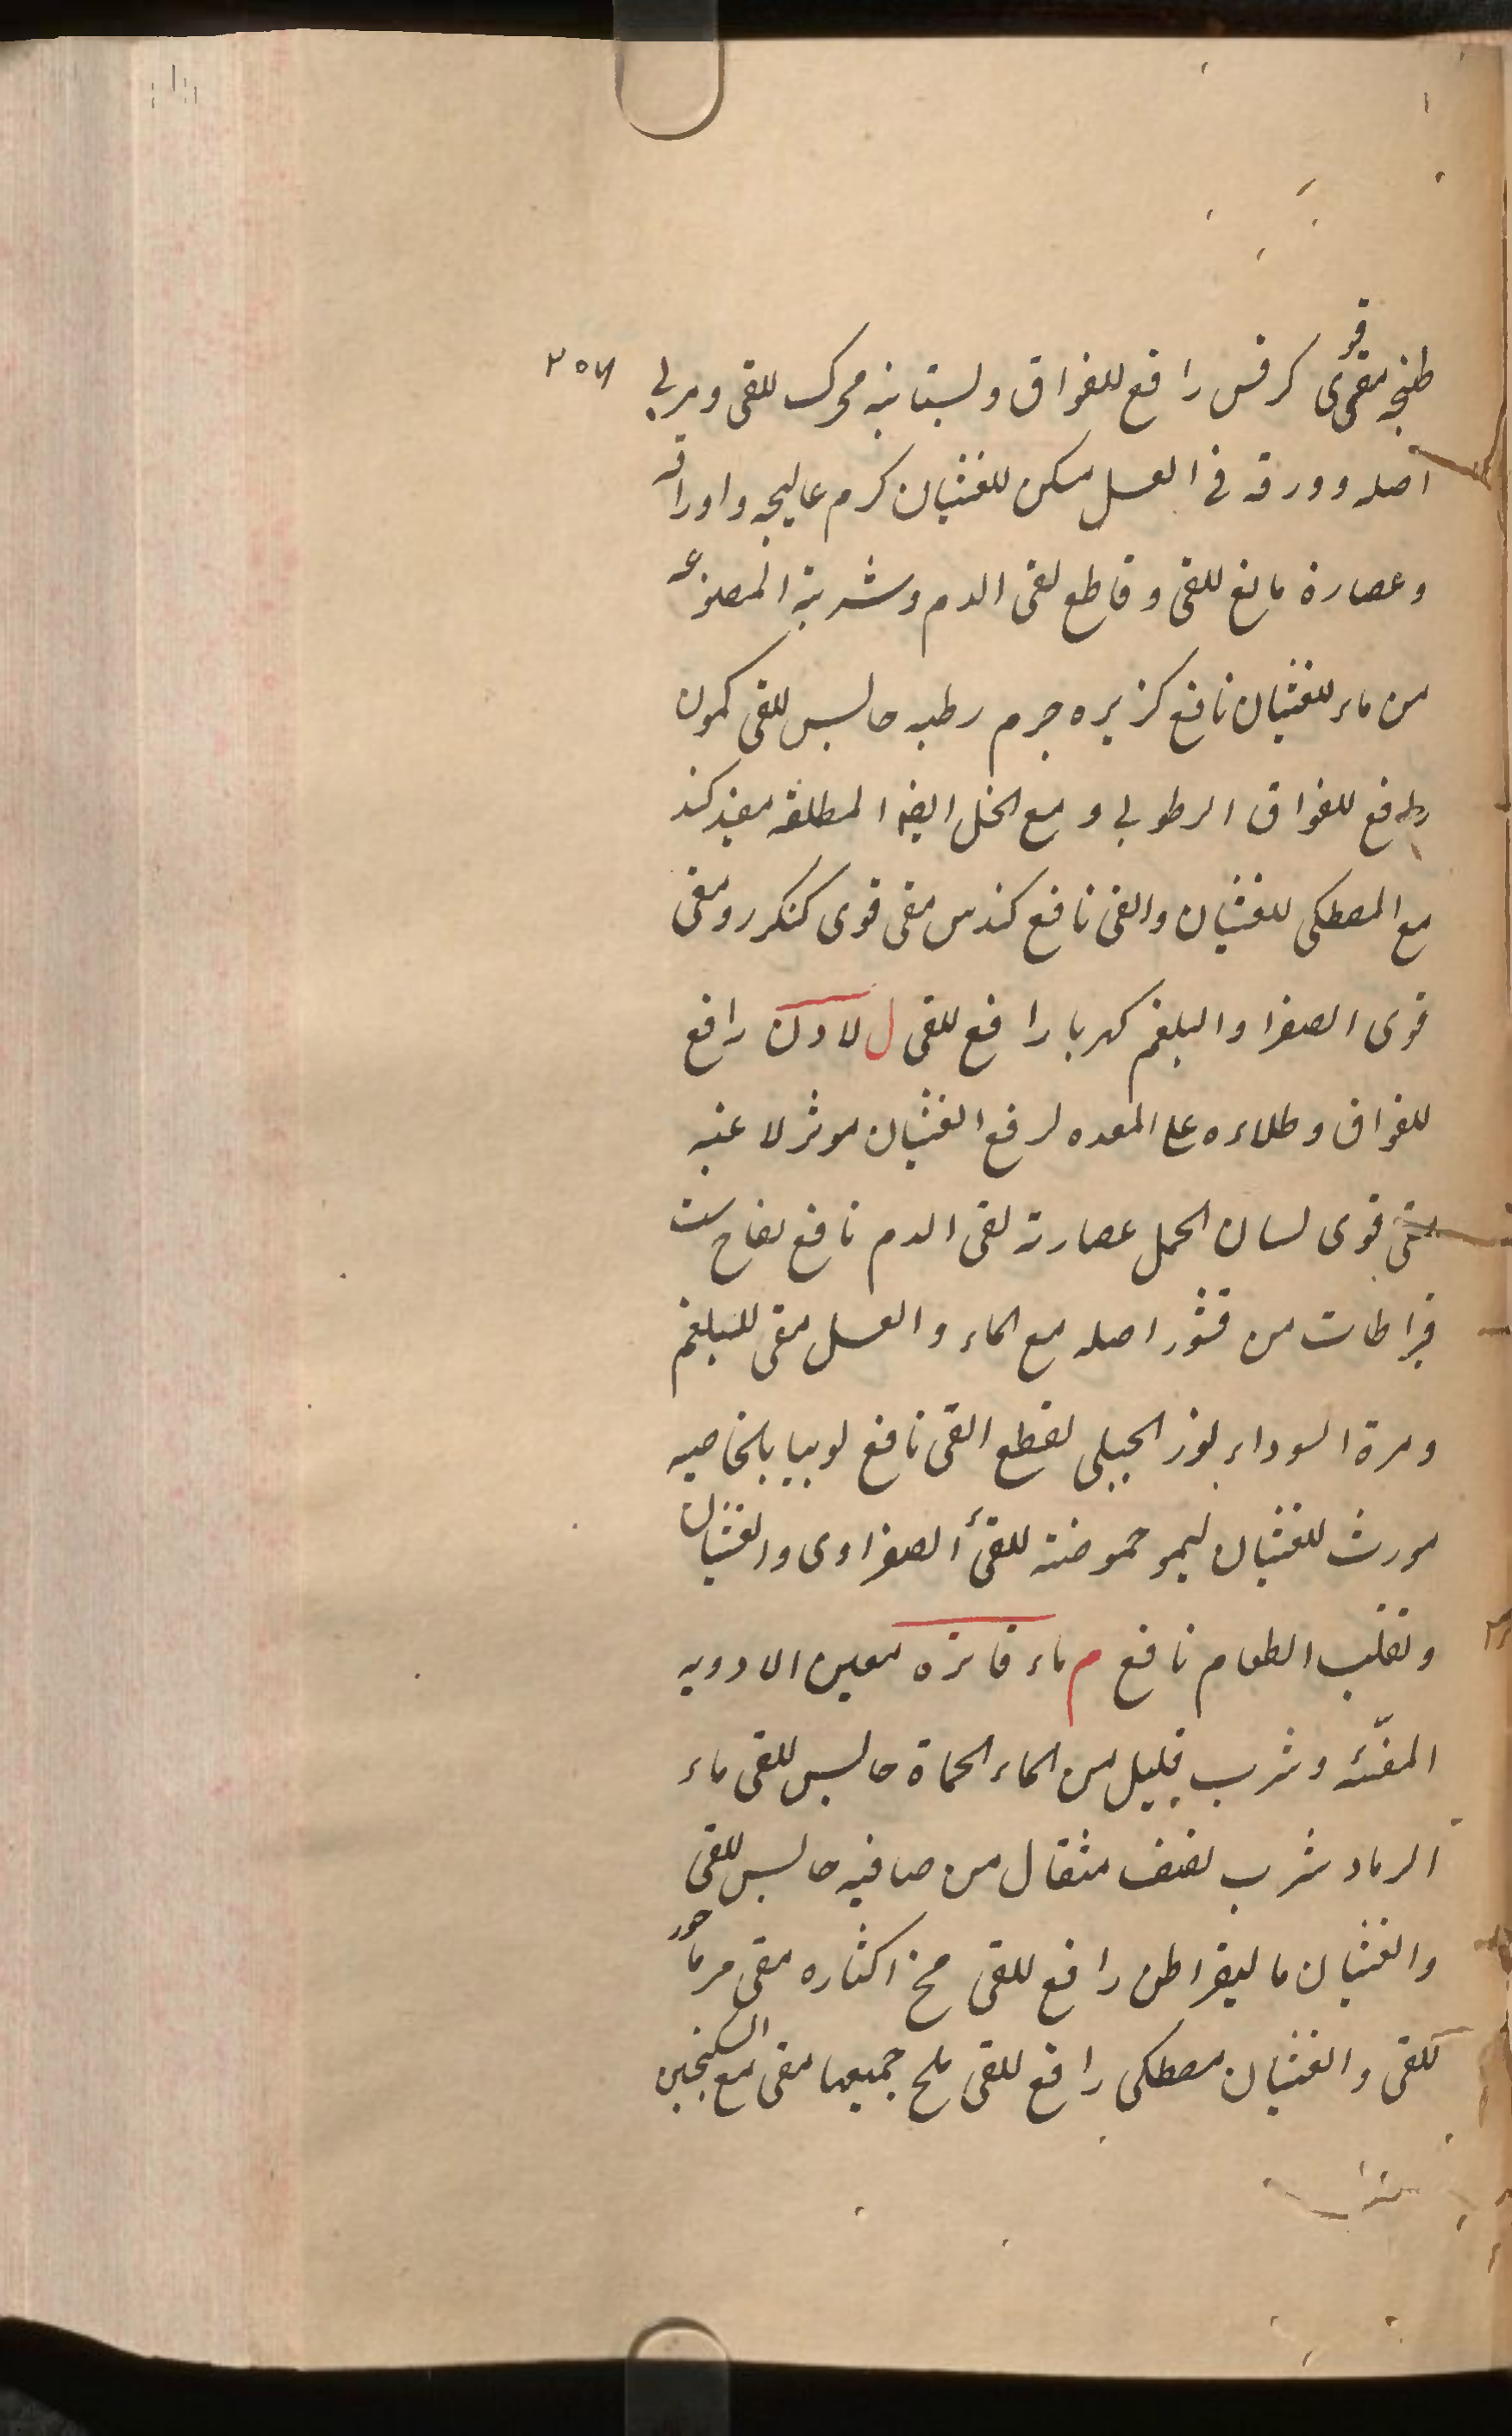 طبخه مقئ قوى كرفس رافع للفواق وبستانيه محرك للقى ومربى
اصله وورقه فى العسل مسكن للغثيان كرم عاليجه واوراقه
وعصارة مانع للقى وقاطع لقى الدم وشربة المصنوعه
من ماء للغثيان نافع كزبره جرم رطبه حابس للقى كمون
رافع للفواق الرطوبى و مع الخل ايضا المطلقه مفيد كند
مع المصطكى للغثيان والقى نافع كندس مقى قوى كنكر رومقى
قوى الصفرا والبلغم كهربا رافع للقى ل لادن رافع
للفواق وطلاءه على المعده لرفع الغثيان موثر لاعيه
مقئ قوى لسان الحمل عصارته لقى الدم نافع لفاح ست
قراطات من قشور اصله مع الماء والعسل مقى للبلغم
ومرة السوداء لوز الجبلى لقطع القى نافع لوبيا بالخاصيه
مورث للغثيان ليمو حموضته للقئ الصفراوى والغثيان
وتقلب الطعام نافع م ماء فاتره معين الادويه
المقئه وشرب قليل من الماء الحماة حابس للقى ماء
الرماد شرب نصف مثقال من صافيه حابس للقى
والغثيان ماليقراطن رافع للقى مخ اكثاره مقى مرماحور
للقى والغثيان مصطكى رافع للقى ملح جميعها مقى مع السكنجبين